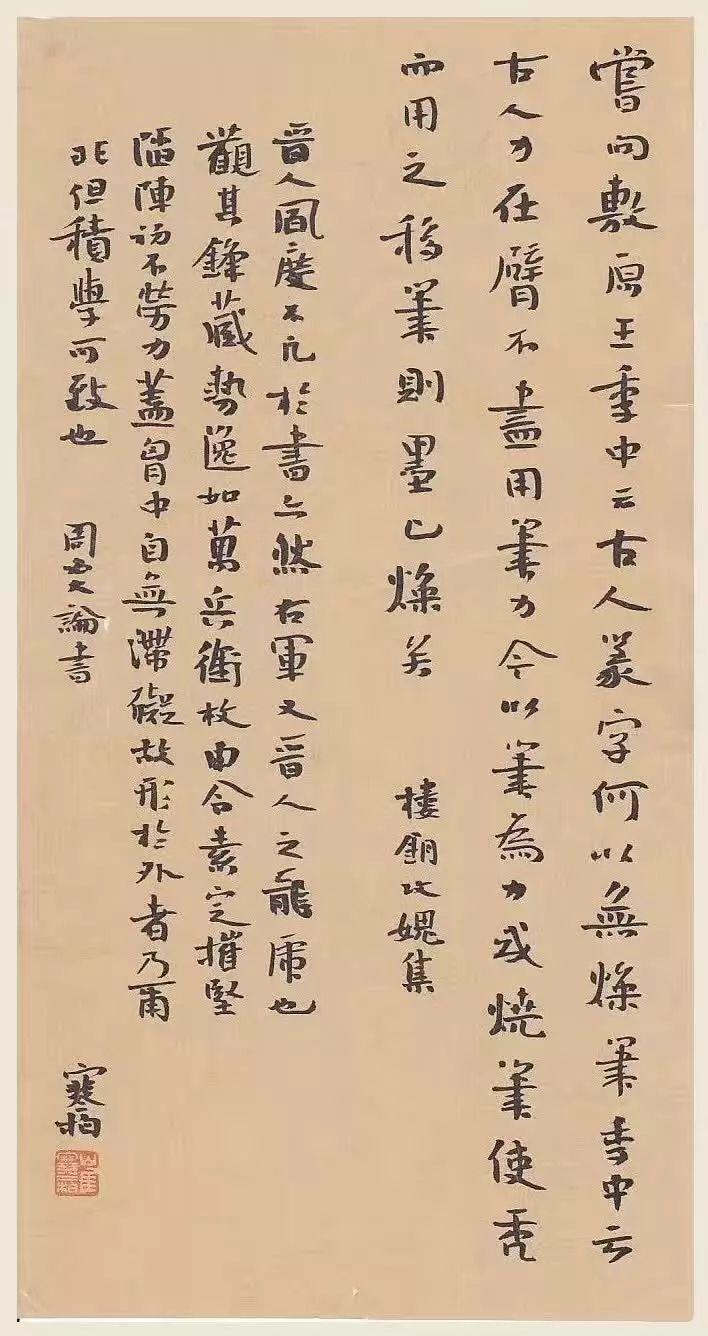 嘗向敷原王季中云古人篆字何以無燥筆季中云
古人力在臂不盡用筆力今以筆為力或燒筆使禿
而用之移筆則墨已燥矣 樓鑰攻媿集
晉人風度不凡於書亦然右軍又晉人之龍虎也
觀其鋒藏勢逸如萬兵銜枚申令素定摧堅
陷陣初不勞力蓋胷中自無滯礙故形於外者乃爾
非但積學可致也 周必大論書
寒柏
崔寒柏